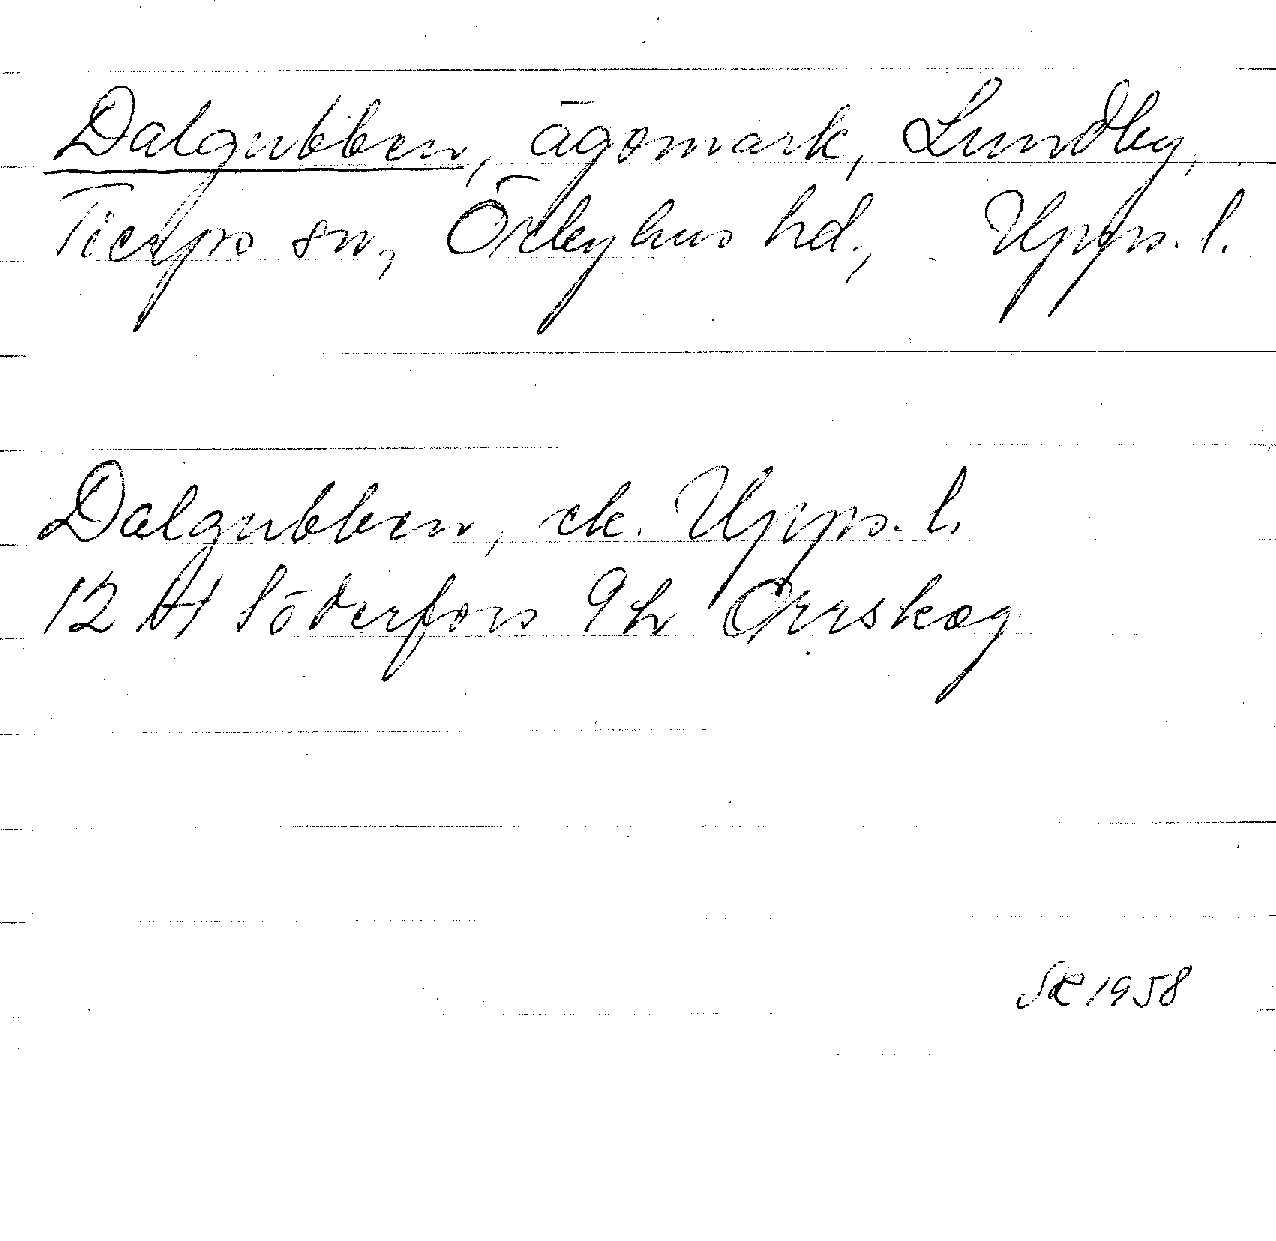 Dalgubben, ägomark, Lundby,
Tierps sn, Örbyhus hd., Upps. l.
Dalgubben, ek. Upps. l.
12 H Söderfors 9 h Orrskog
1958